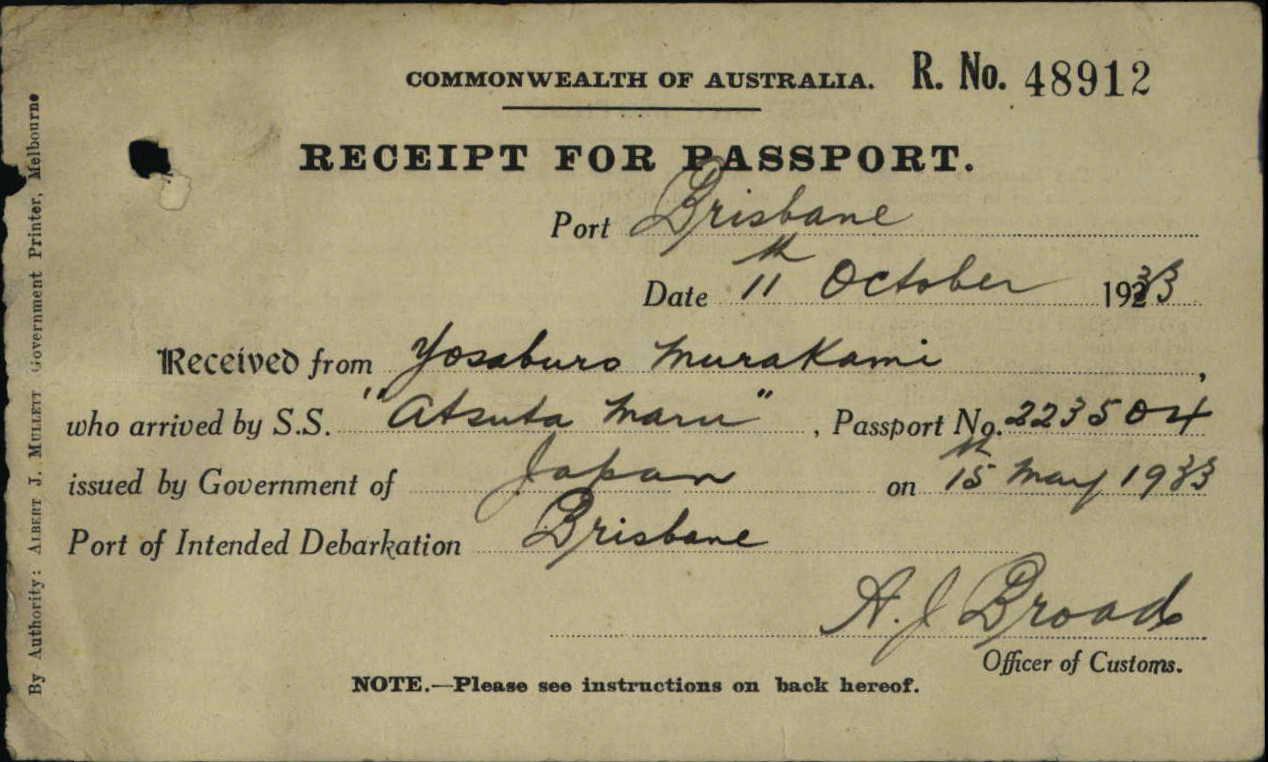 COMMONWEALTH OF AUSTRALIA. R. No. 48912
RECEIPT FOR PASSPORT.
Port Brisbane
Date 11th October 1933
Received from Yosaburo Murakami,
who arrived by S.S. "Atsuta Maru", Passport No. 223504
issued by Government of Japan on 15th May 1933
Port of Intended Debarkation Brisbane
A. J Broad
Officer of Customs.
NOTE.—Please see instructions on back hereof.
By Authority: ALBERT J. MULLETT Government Printer, Melbourne